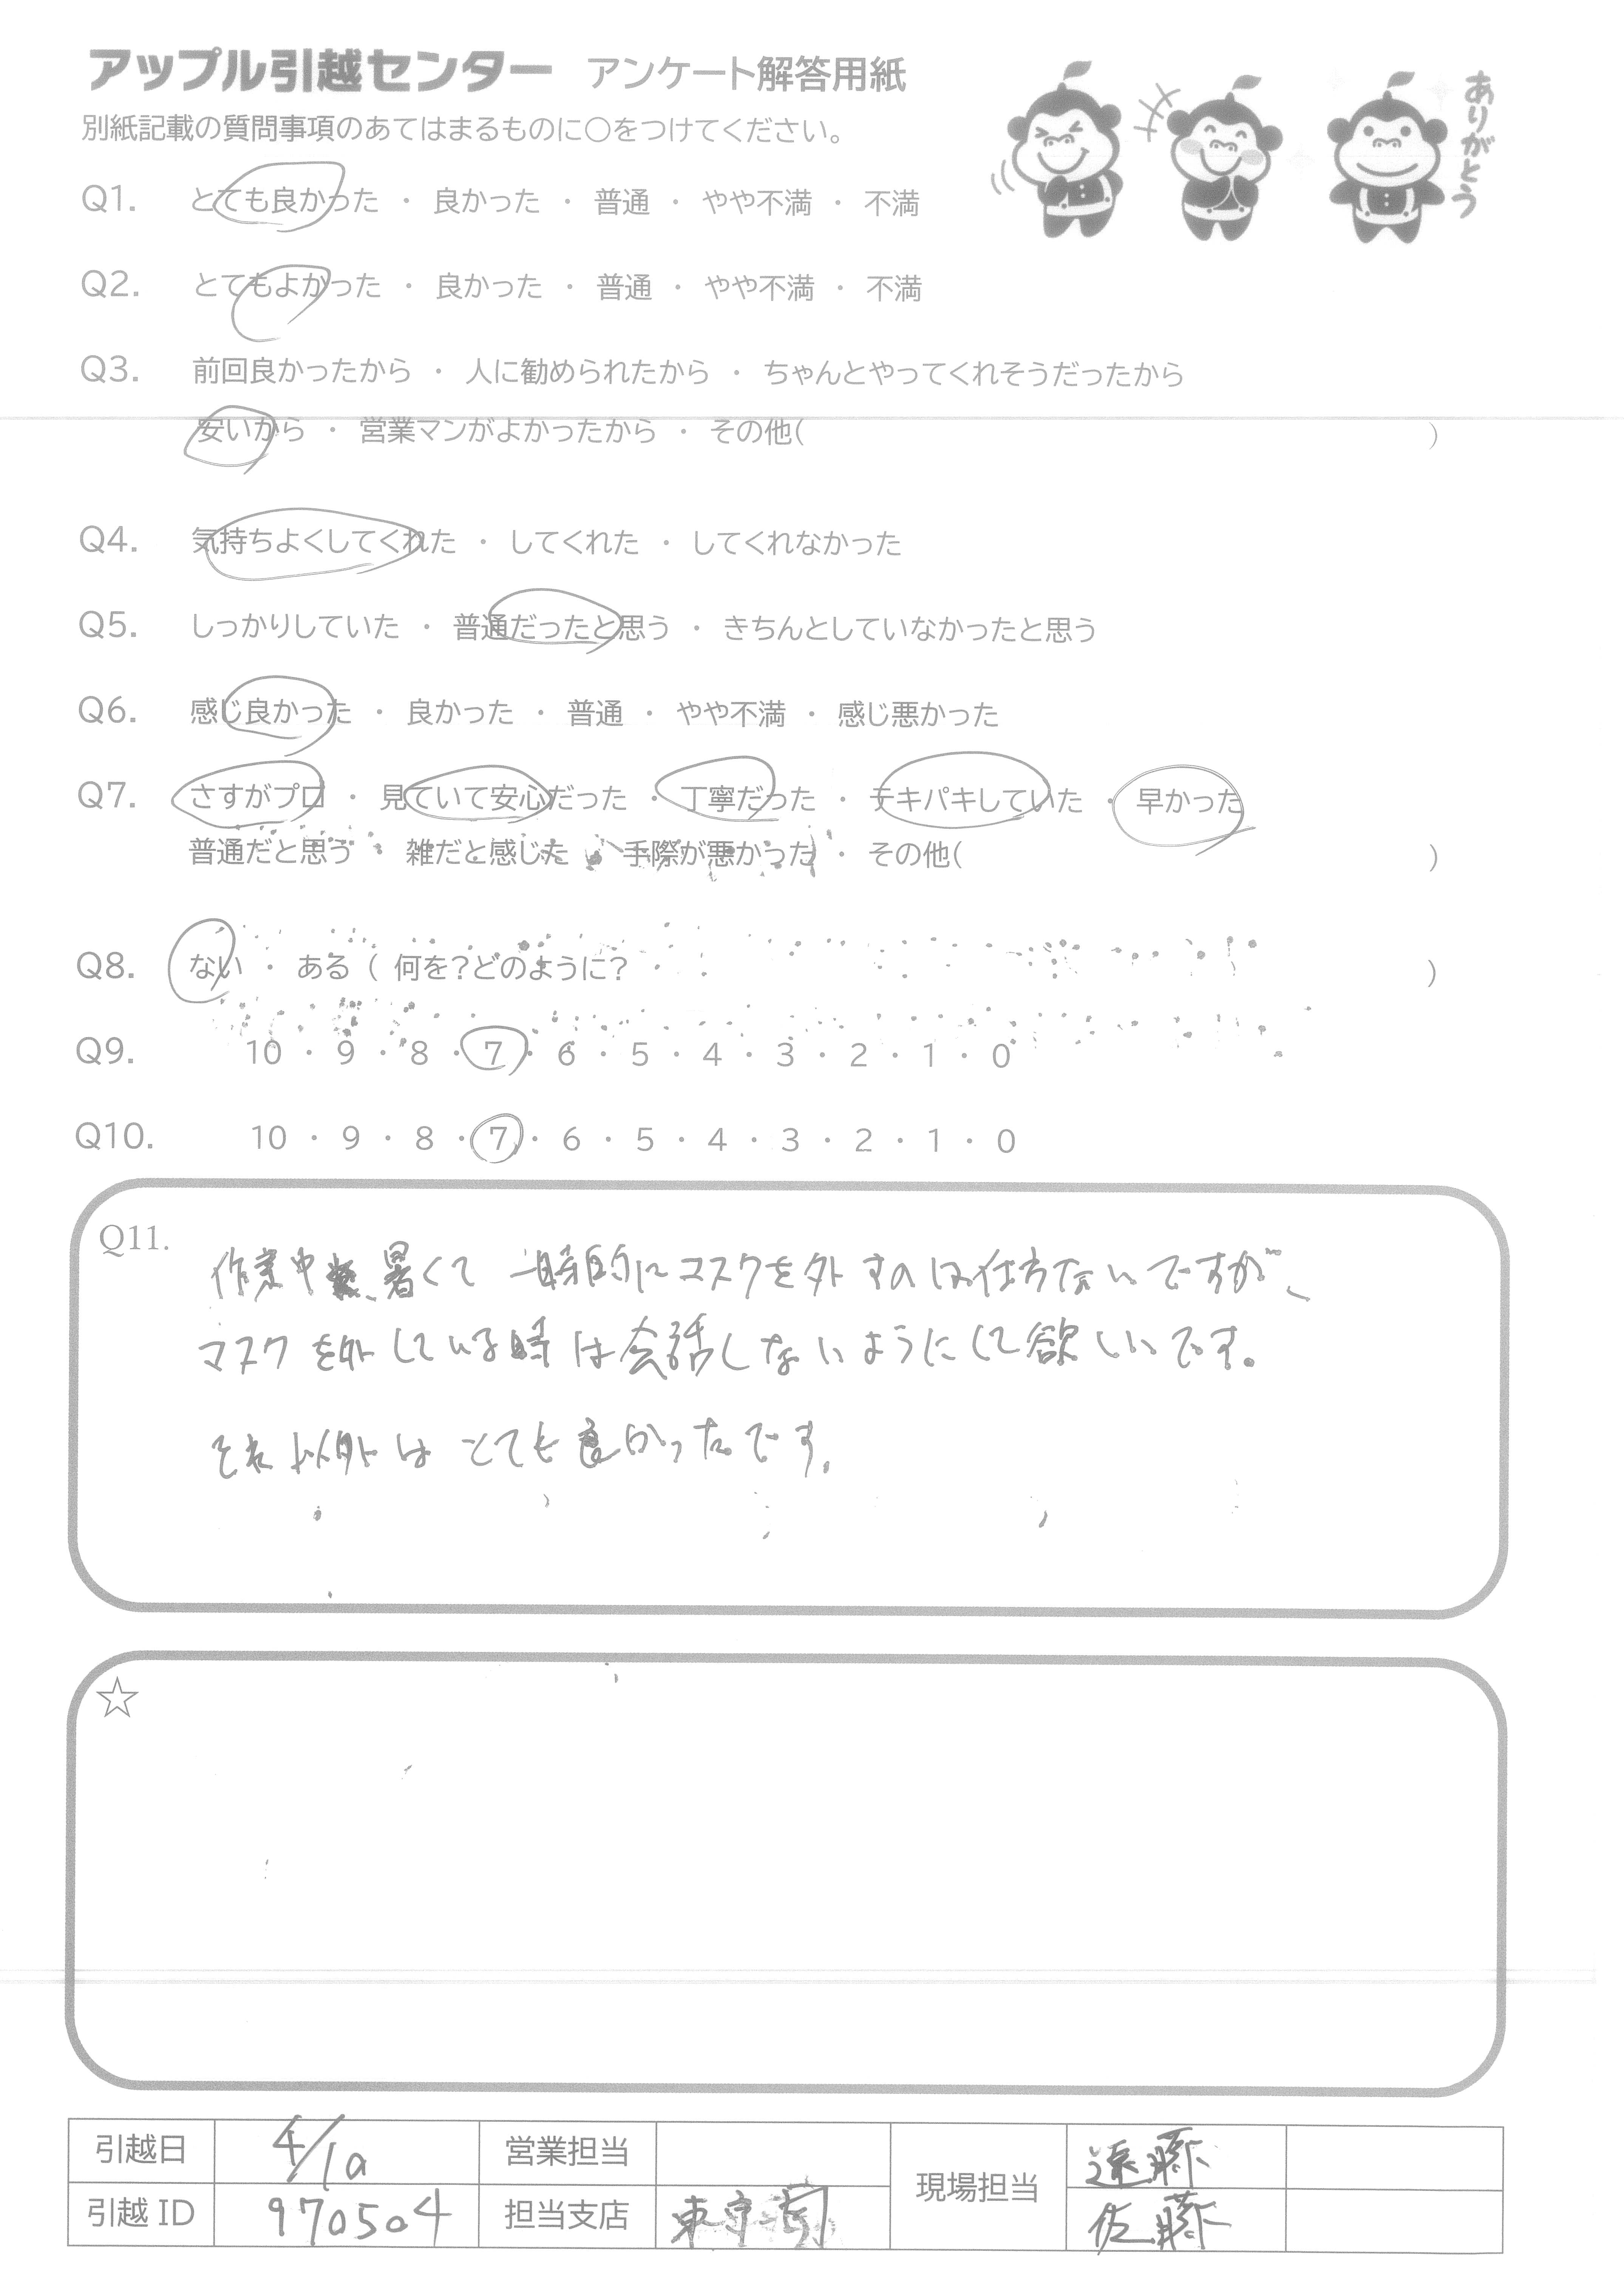 アップル引越センター アンケート解答用紙
ありがとう
別紙記載の質問事項のあてはまるものに○をつけてください。
Q1. とても良かった ・ 良かった ・ 普通 ・ やや不満 ・ 不満
Q2. とてもよかった ・ 良かった ・ 普通 ・ やや不満 ・ 不満
Q3. 前回良かったから ・ 人に勧められたから ・ ちゃんとやってくれそうだったから
安いから ・ 営業マンがよかったから ・ その他( )
Q4. 気持ちよくしてくれた ・ してくれた ・ してくれなかった
Q5. しっかりしていた ・ 普通だったと思う ・ きちんとしていなかったと思う
Q6. 感じ良かった ・ 良かった ・ 普通 ・ やや不満 ・ 感じ悪かった
Q7. さすがプロ ・ 見ていて安心だった ・ 丁寧だった ・ テキパキしていた ・ 早かった
普通だと思う ・ 雑だと感じた ・ 手際が悪かった ・ その他( )
Q8. ない ・ ある ( 何を?どのように? )
Q9. 10 ・ 9 ・ 8 ・ 7 ・ 6 ・ 5 ・ 4 ・ 3 ・ 2 ・ 1 ・ 0
Q10. 10 ・ 9 ・ 8 ・ 7 ・ 6 ・ 5 ・ 4 ・ 3 ・ 2 ・ 1 ・ 0
Q11.
作業中、暑くて 一時的にマスクを外すのは仕方ないですが、
マスクを外している時は会話しないようにして欲しいです。
それ以外は とても良かったです。
☆
引越日 4/10 営業担当 現場担当 遠藤
引越 ID 970504 担当支店 佐藤